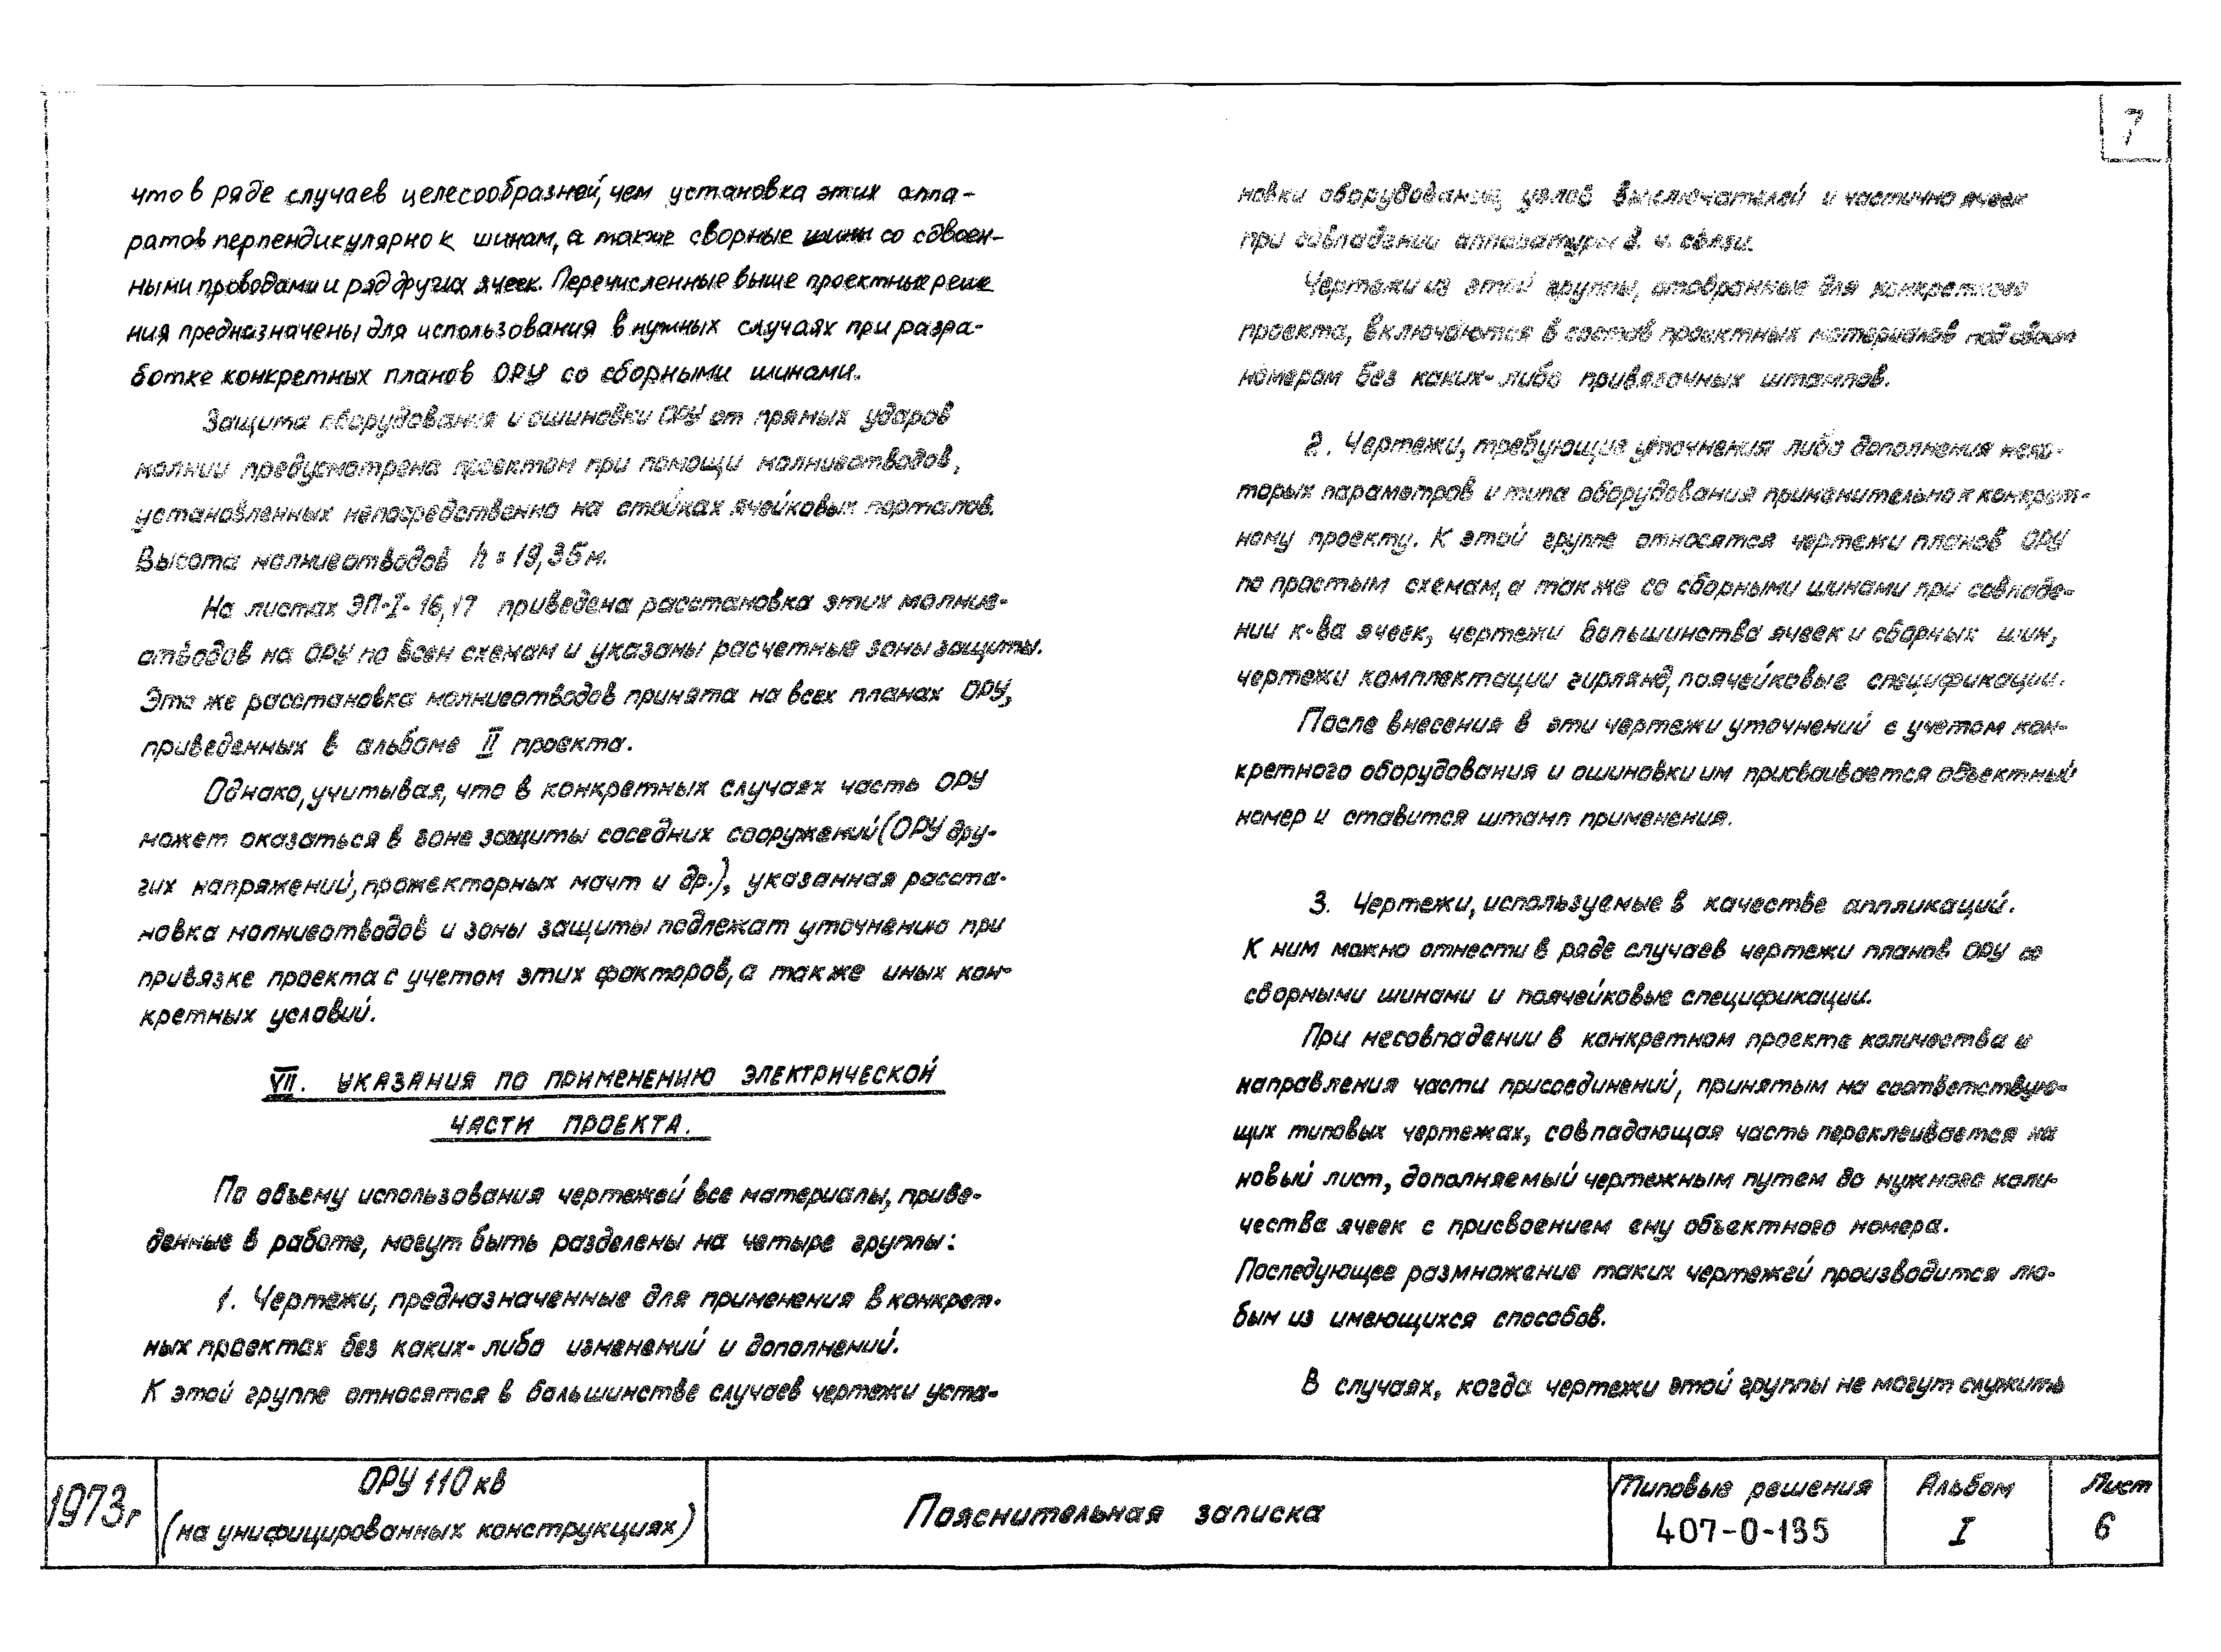 7
что в ряде случаев целесообразней, чем установка этих аппа-
ратов перпендикулярно к шинам, а также сборные шины со сдвоен-
ными проводами и ряд других ячеек. Перечисленные выше проектные реше
ния предназначены для использования в нужных случаях при разра-
ботке конкретных планов ОРУ со сборными шинами.
Защита оборудования и ошиновки ОРУ от прямых ударов
молнии предусмотрена проектом при помощи молниеотводов,
установленных непосредственно на стойках ячейковых порталов.
Высота молниеотводов h = 19,35 м.
На листах ЭП-I-16,17 приведена расстановка этих молние-
отводов на ОРУ по всем схемам и указаны расчетные зоны защиты.
Эта же расстановка молниеотводов принята на всех планах ОРУ,
приведенных в альбоме II проекта.
Однако, учитывая, что в конкретных случаях часть ОРУ
может оказаться в зоне защиты соседних сооружений (ОРУ дру-
гих напряжений, прожекторных мачт и др.), указанная расста-
новка молниеотводов и зоны защиты подлежат уточнению при
привязке проекта с учетом этих факторов, а также иных кон-
кретных условий.
VII. УКАЗАНИЯ ПО ПРИМЕНЕНИЮ ЭЛЕКТРИЧЕСКОЙ
ЧАСТИ ПРОЕКТА.
По объему использования чертежей все материалы, приве-
денные в работе, могут быть разделены на четыре группы:
1. Чертежи, предназначенные для применения в конкрет-
ных проектах без каких-либо изменений и дополнений.
К этой группе относятся в большинстве случаев чертежи уста-
новки оборудования, узлов выключателей и частично ячеек
при совпадении аппаратуры в. ч. связи.
Чертежи из этой группы, отобранные для конкретного
проекта, включаются в состав проектных материалов под своим
номером без каких-либо привязочных штампов.
2. Чертежи, требующие уточнения либо дополнения неко-
торых параметров и типа оборудования применительно к конкрет-
ному проекту. К этой группе относятся чертежи планов ОРУ
по простым схемам, а также со сборными шинами при совпаде-
нии к-ва ячеек, чертежи большинства ячеек и сборных шин,
чертежи комплектации гирлянд, поячейковые спецификации.
После внесения в эти чертежи уточнений с учетом кон-
кретного оборудования и ошиновки им присваивается объектный
номер и ставится штамп применения.
3. Чертежи, используемые в качестве аппликаций.
К ним можно отнести в ряде случаев чертежи планов ОРУ со
сборными шинами и поячейковые спецификации.
При несовпадении в конкретном проекте количества и
направления части присоединений, принятым на соответствую-
щих типовых чертежах, совпадающая часть переклеивается на
новый лист, дополняемый чертежным путем до нужного коли-
чества ячеек с присвоением ему объектного номера.
Последующее размножение таких чертежей производится лю-
бым из имеющихся способов.
В случаях, когда чертежи этой группы не могут служить
1973г
ОРУ 110 кв
(на унифицированных конструкциях)
Пояснительная записка
Типовые решения
407-0-135
Альбом
I
Лист
6